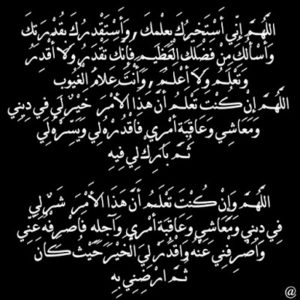 اللَّهُمَّ إِنِّي أَسْتَخِيرُكَ بِعِلْمِكَ ، وَأَسْتَقْدِرُكَ بِقُدْرَتِكَ
وَأَسْأَلُكَ مِنْ فَضْلِكَ الْعَظِيمِ فَإِنَّكَ تَقْدِرُ وَلَا أَقْدِرُ
وَتَعْلَمُ وَلَا أَعْلَمُ ، وَأَنْتَ عَلَّامُ الْغُيُوبِ
اللَّهُمَّ إِنْ كُنْتَ تَعْلَمُ أَنَّ هَذَا الْأَمْرَ خَيْرٌ لِي فِي دِينِي
وَمَعَاشِي وَعَاقِبَةِ أَمْرِي فَاقْدُرْهُ لِي وَيَسِّرْهُ لِي
ثُمَّ بَارِكْ لِي فِيهِ
اللَّهُمَّ وَإِنْ كُنْتَ تَعْلَمُ أَنَّ هَذَا الْأَمْرَ شَرٌّ لِي
فِي دِينِي وَمَعَاشِي وَعَاقِبَةِ أَمْرِي وَآجِلِهِ فَاصْرِفْهُ عَنِّي
وَاصْرِفْنِي عَنْهُ وَاقْدُرْ لِيَ الْخَيْرَ حَيْثُ كَانَ
ثُمَّ ارْضِنِي بِهِ
@